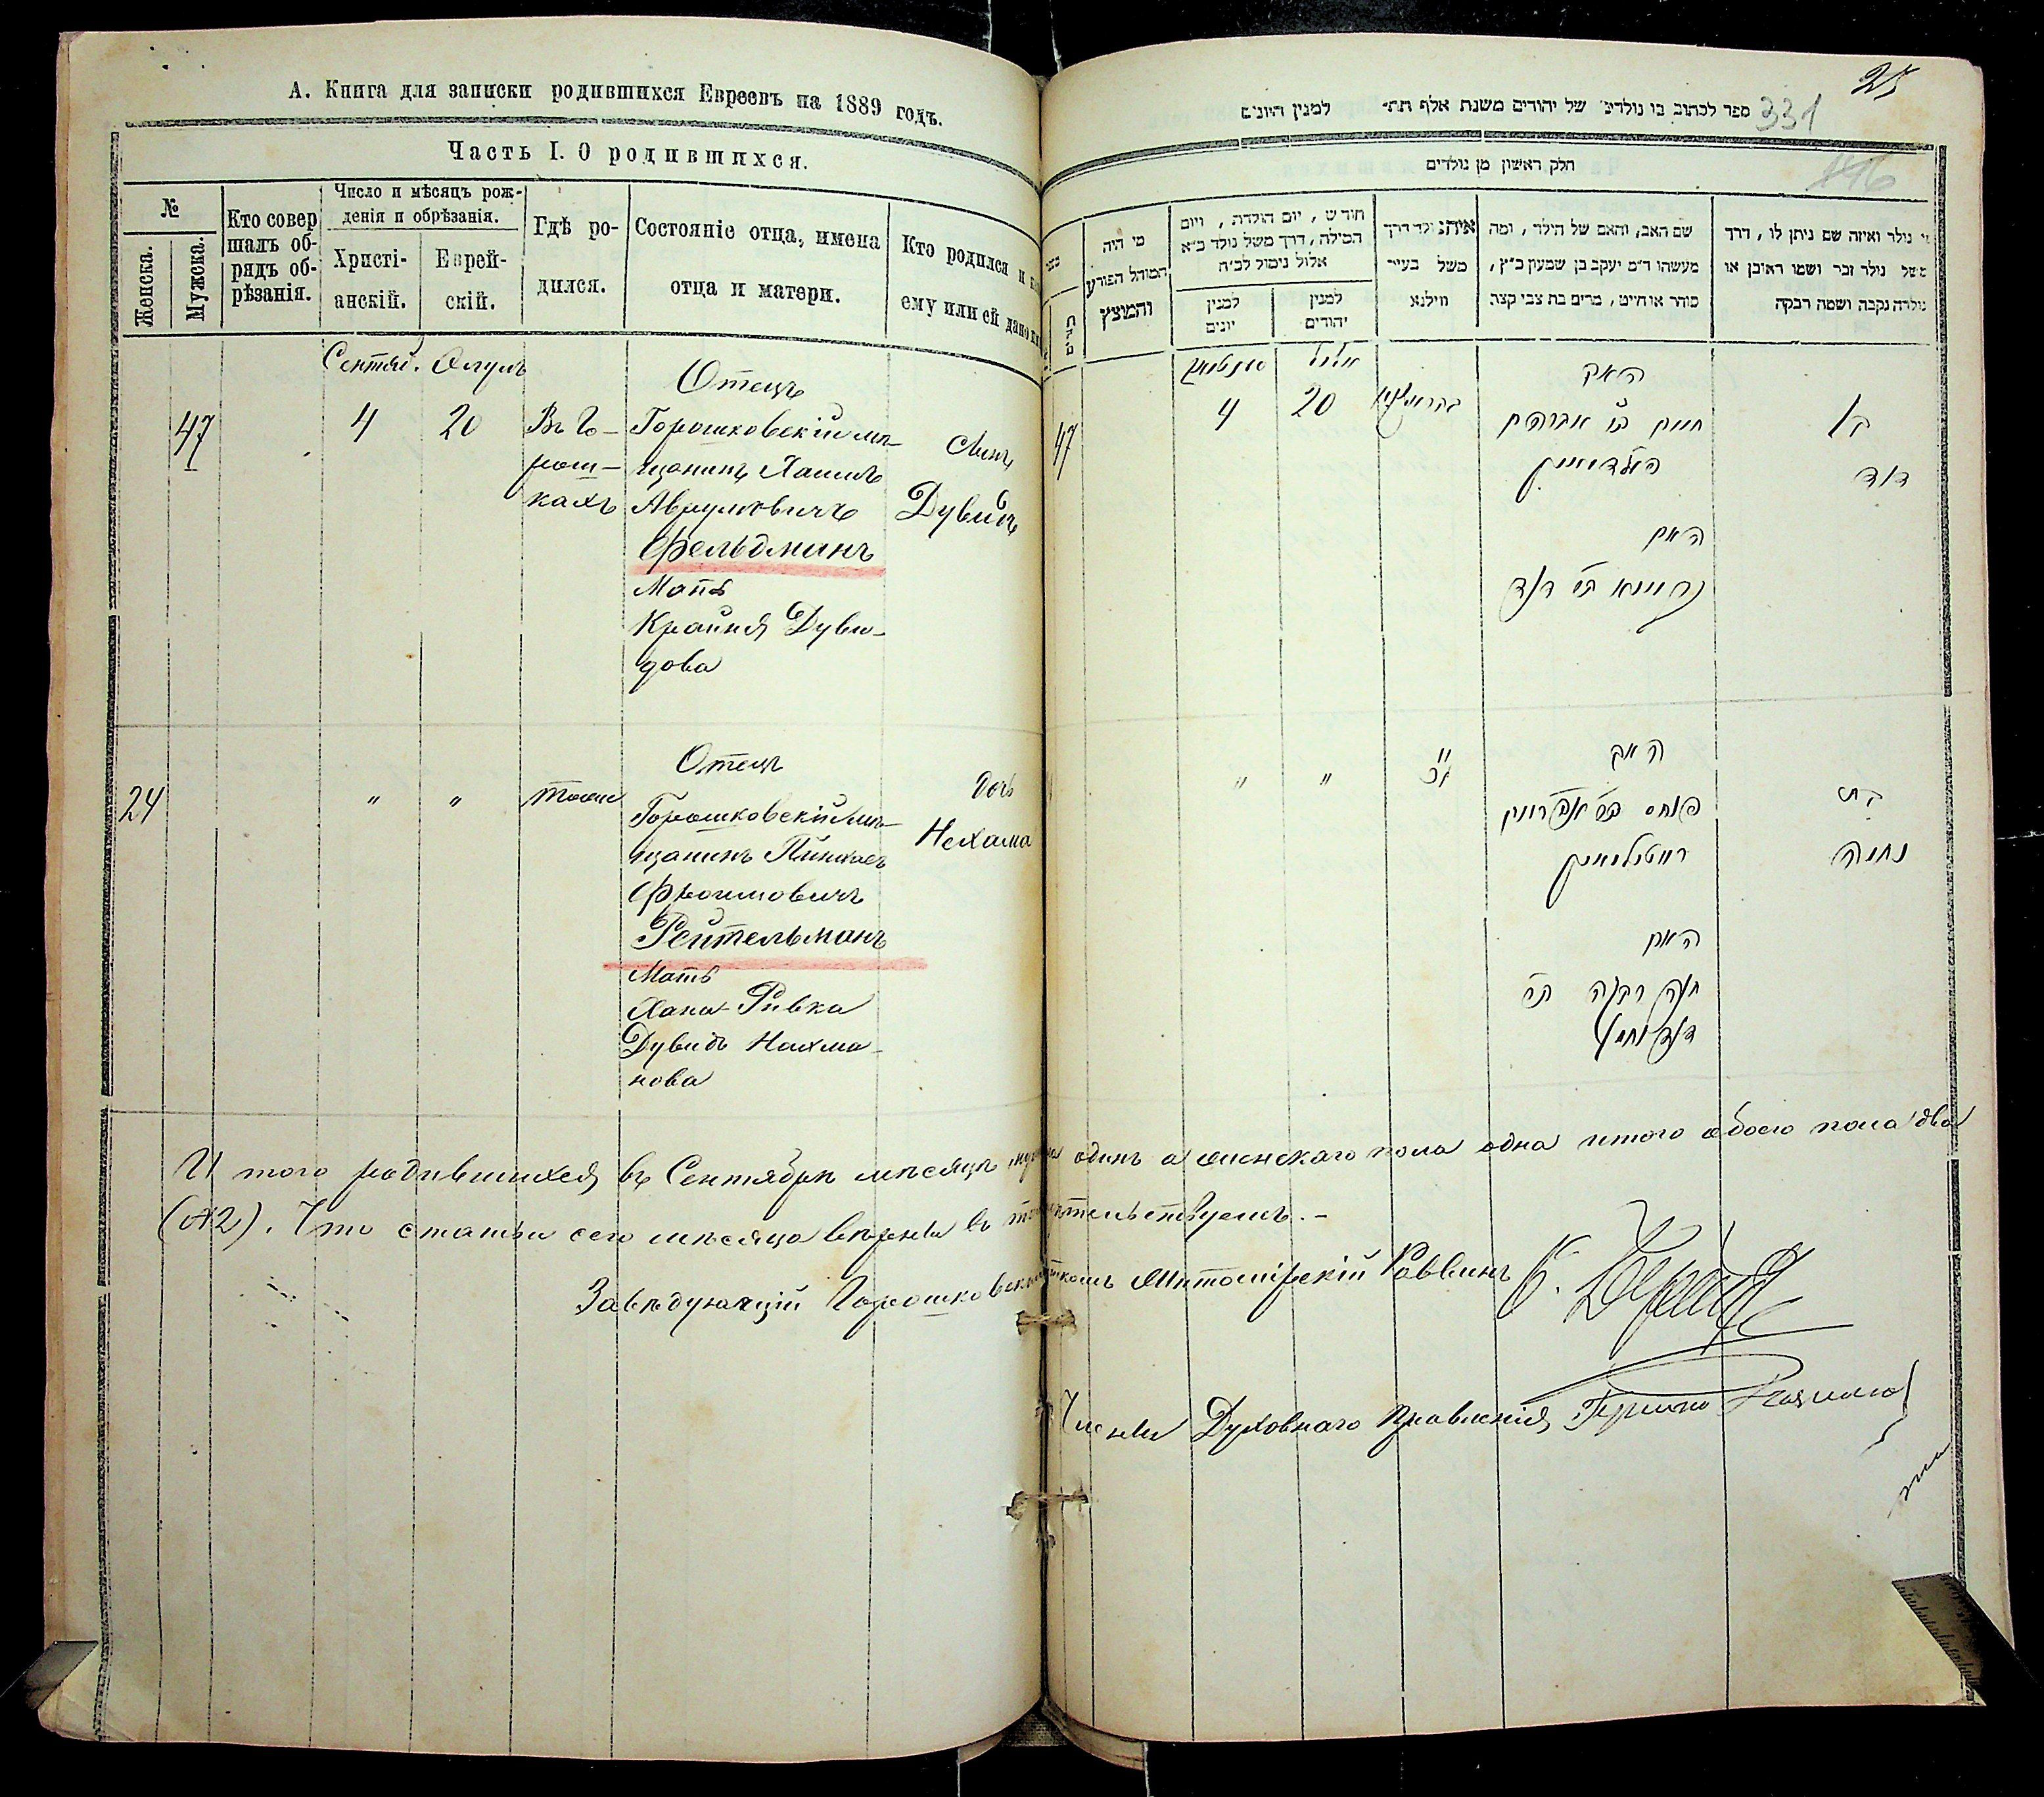 А. Книга для записки родившихся Евреевъ на 1889 годъ.
Часть I. О родившихся.
№
Женска.
Мужска.
Кто совер
шалъ об-
рядъ об-
рѣзанія.
Число и мѣсяцъ рож-
денія и обрѣзанія.
Христі-
анскій.
Еврей-
скій.
Гдѣ ро-
дился.
Состояніе отца, имена
отца и матери.
Кто родился и
ему или ей дано
Сентяб. Элулъ
47
4
20
Въ Го-
рош-
кахъ
Отецъ
Горошковскій мѣ-
щанинъ Хаимъ
Аврумовичъ
Фельдманъ
Мать
Крайня Дуви-
дова
Сынъ
Дувидъ
24
"
"
тоже
Отецъ
Горошковскій мѣ-
щанинъ Пинхасъ
Фроимовичъ
Рейтельманъ
Мать
Хана-Ривка
Дувидъ Нахма-
нова
Дочь
Нехама
25
331
146
ספר לכתוב בו נולדים של יהודים משנת אלף תת״ למנין היונים
חלק ראשון מן נולדים
מי היה
המוהל הפורע
והמוצץ
חודש, יום הולדה, ויום
המילה, דרך משל נולד כ״א
אלול נימול לכ״ח
למנין
יונים
למנין
יהודים
משל בעיר
ווילנא
שם האב, והאם של הילד, ומה
מעשהו ד״מ יעקב בן שמעון כ״ץ,
סוחר או חייט, מרים בת צבי קצב
נולד ואיזה שם ניתן לו, דרך
משל נולד זכר ושמו ראובן או
נולדה נקבה ושמה רבקה
47
4
20
אלול
האב
חיים בן אברהם
פעלדמאן
האם
קריינא בת דוד
בן
דוד
"
"
האב
פנחס בן אפרים
רייטילמאן
האם
חנה רבקה בת
דוד נחמן
בת
נחמה
И того родившихся въ Сентябрѣ мѣсяцѣ одинъ а женскаго пола одна итого обоего пола два
(№2). Что статьи сего мѣсяца вѣрны въ
Завѣдующій Горошковскимъ Житомірскій Раввинъ
Члены Духовнаго Правленія